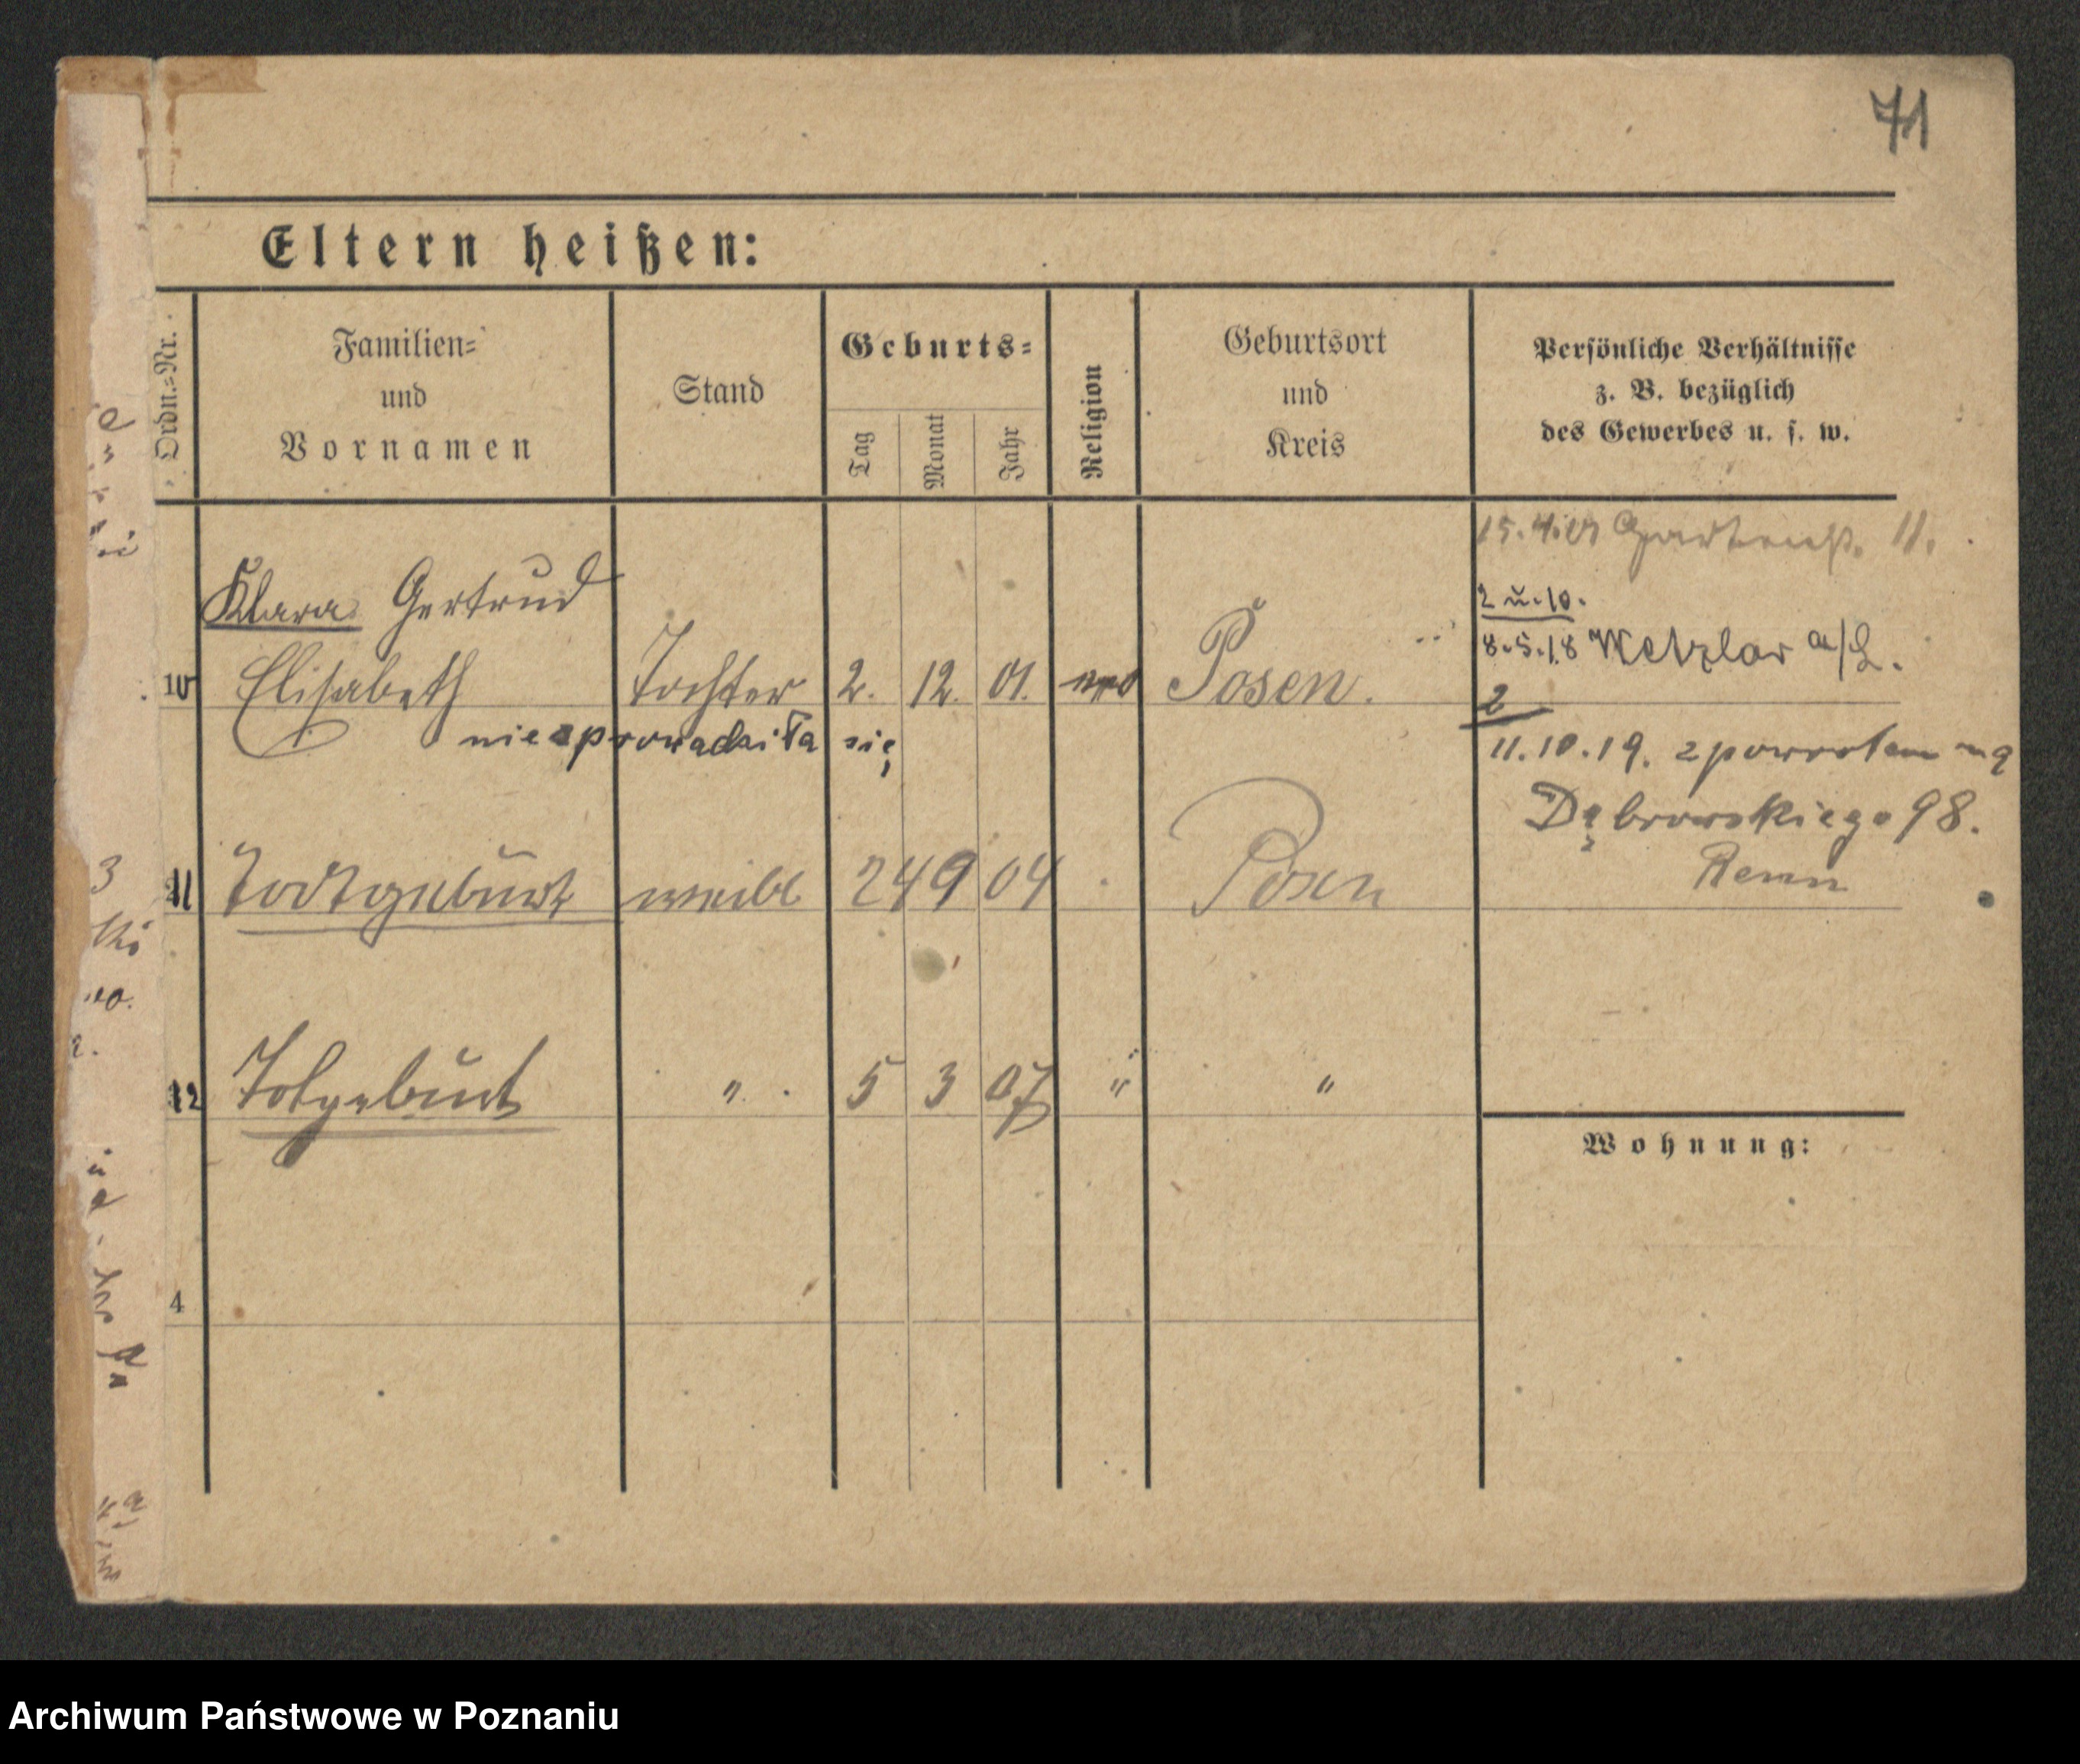 71
Eltern heißen:
Ordn.-Nr.
Familien-
und
Vornamen
Stand
Geburts-
Tag
Monat
Jahr
Religion
Geburtsort
und
Kreis
Persönliche Verhältnisse
z. B. bezüglich
des Gewerbes u. s. w.
15.4. 11.
2 u. 10.
8.5.18 Wetzlar a/L.
Klara Gertrud
10 Elisabeth Tochter 2. 12. 01. Posen.
2
nie sprowadziła się
11.10.19. z powrotem na
Dąbrowskiego 98.
11 Todtgeburt weibl 24 9 04 Posen
12 Totgeburt " 5 3 07 " "
Wohnung:
4
Archiwum Państwowe w Poznaniu